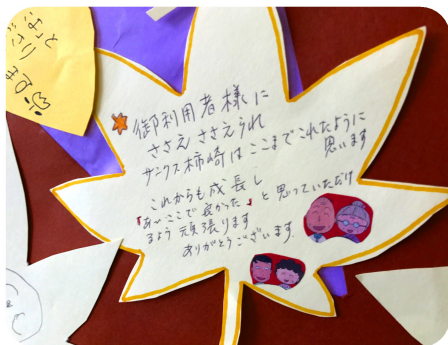 御利用者様に
ささえ ささえられ
サンクス柿崎は ここまでこれたように
思います
これからも成長し
「あ〜ここで良かった」と 思っていただけ
るよう 頑張ります
ありがとうございます。